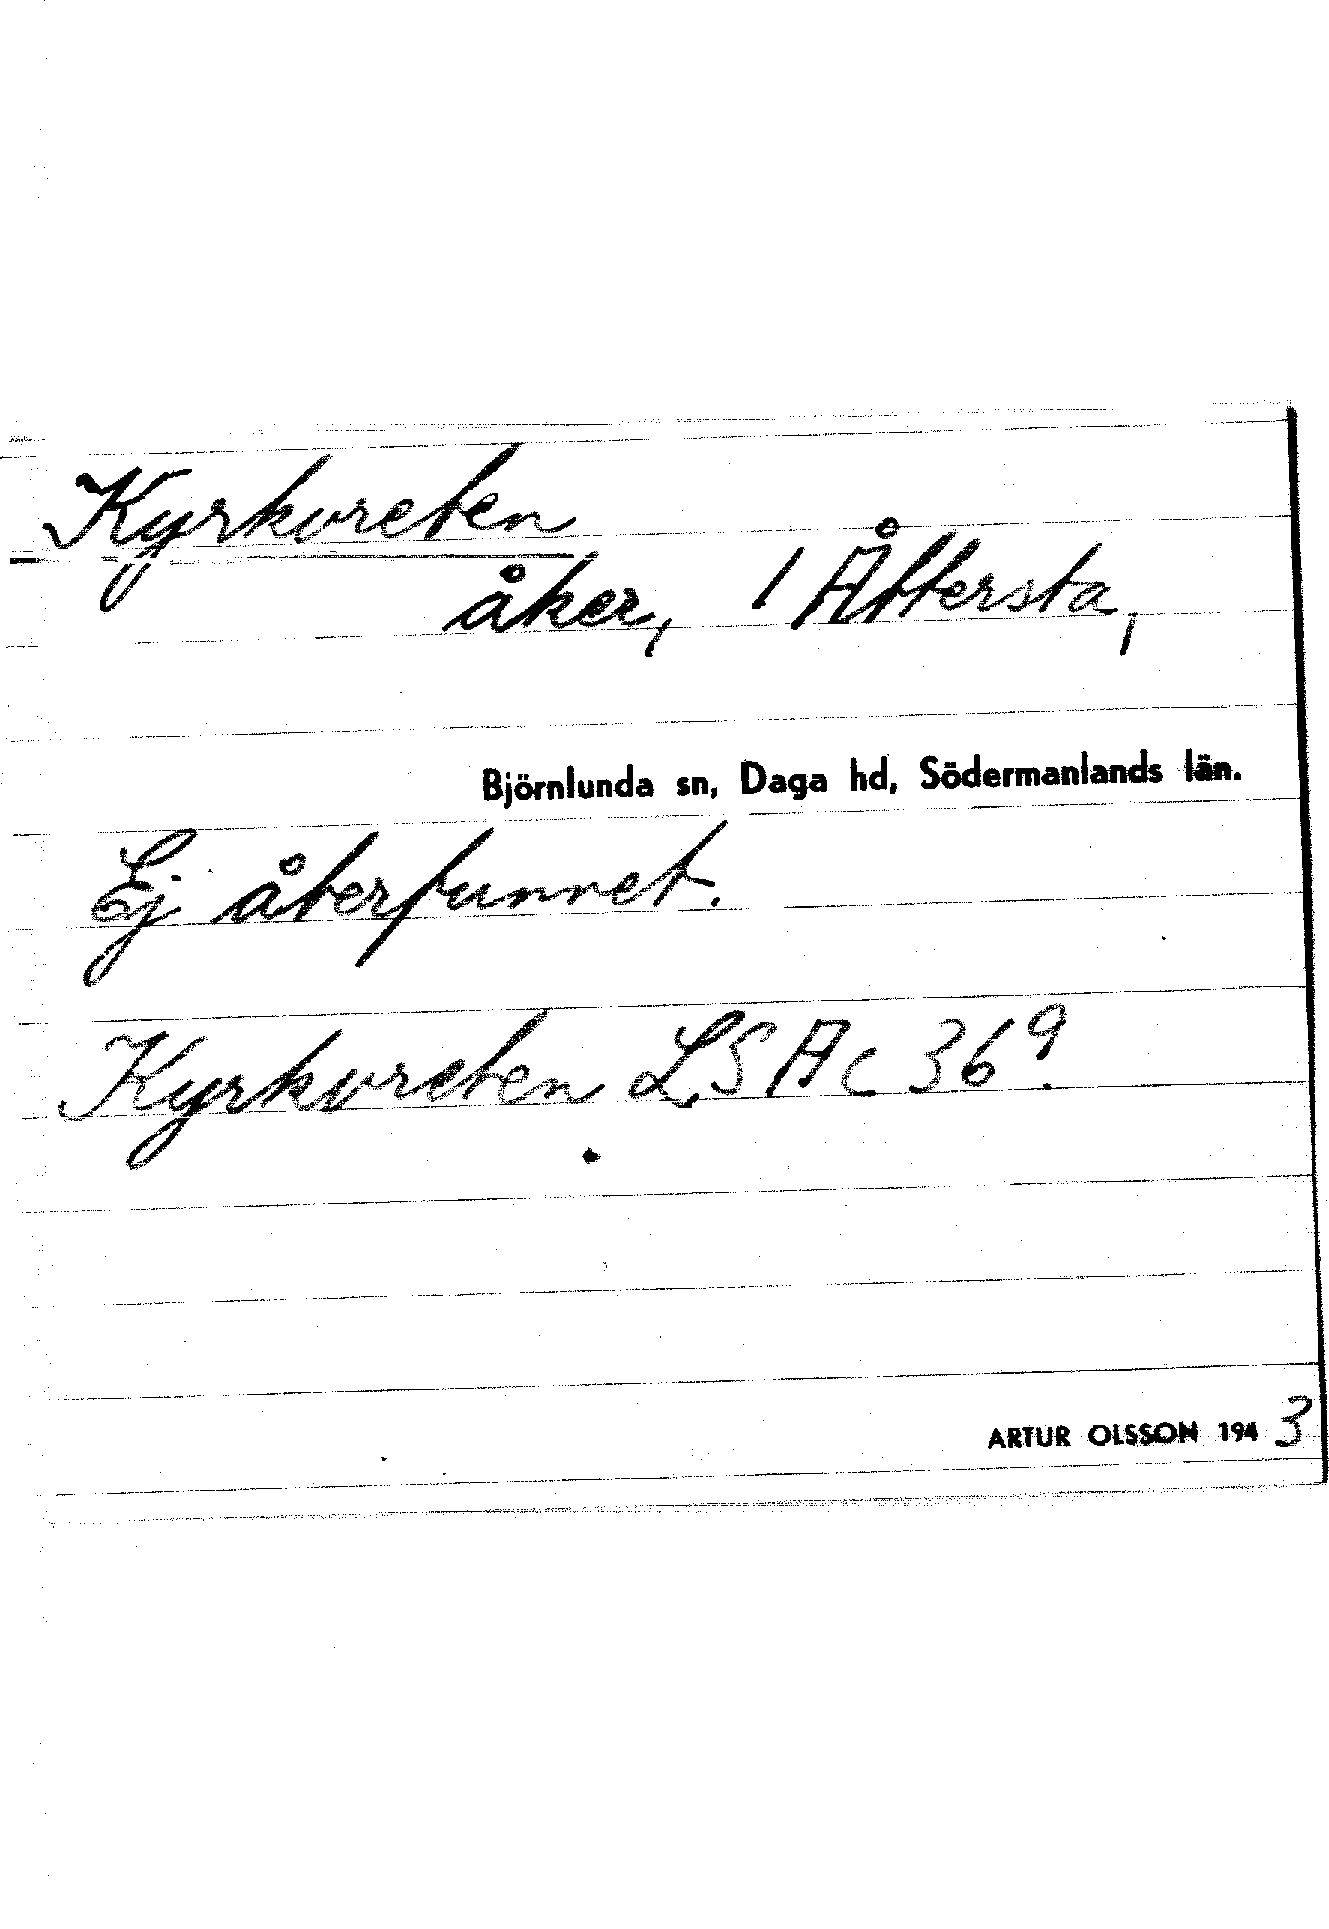 Kyrkvreten
åker, / Åttersta,
Björnlunda sn, Daga hd, Södermanlands län.
Ej återfunnet.
Kyrkvreten LSA c 36⁹.
ARTUR OLSSON 1943